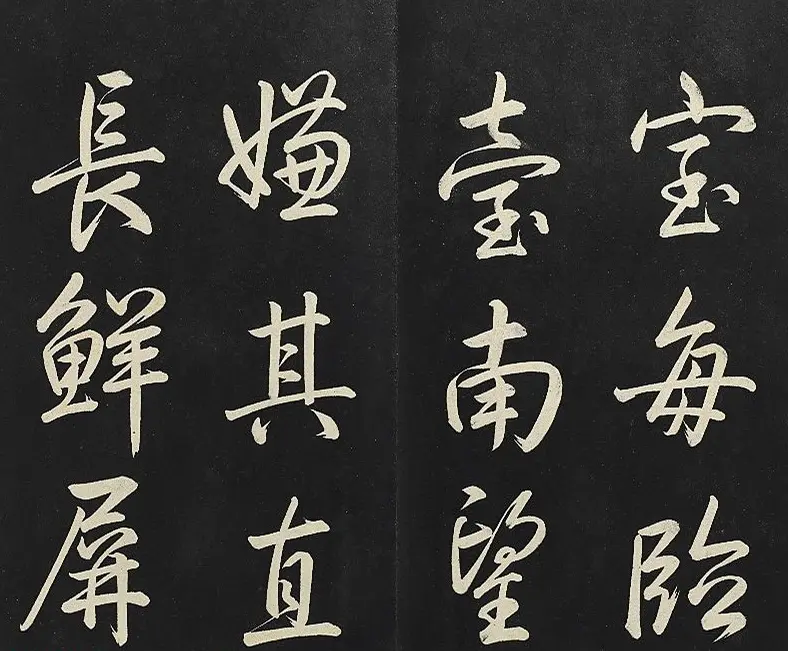 室每臨
臺南望
嫌其直
長鮮屏